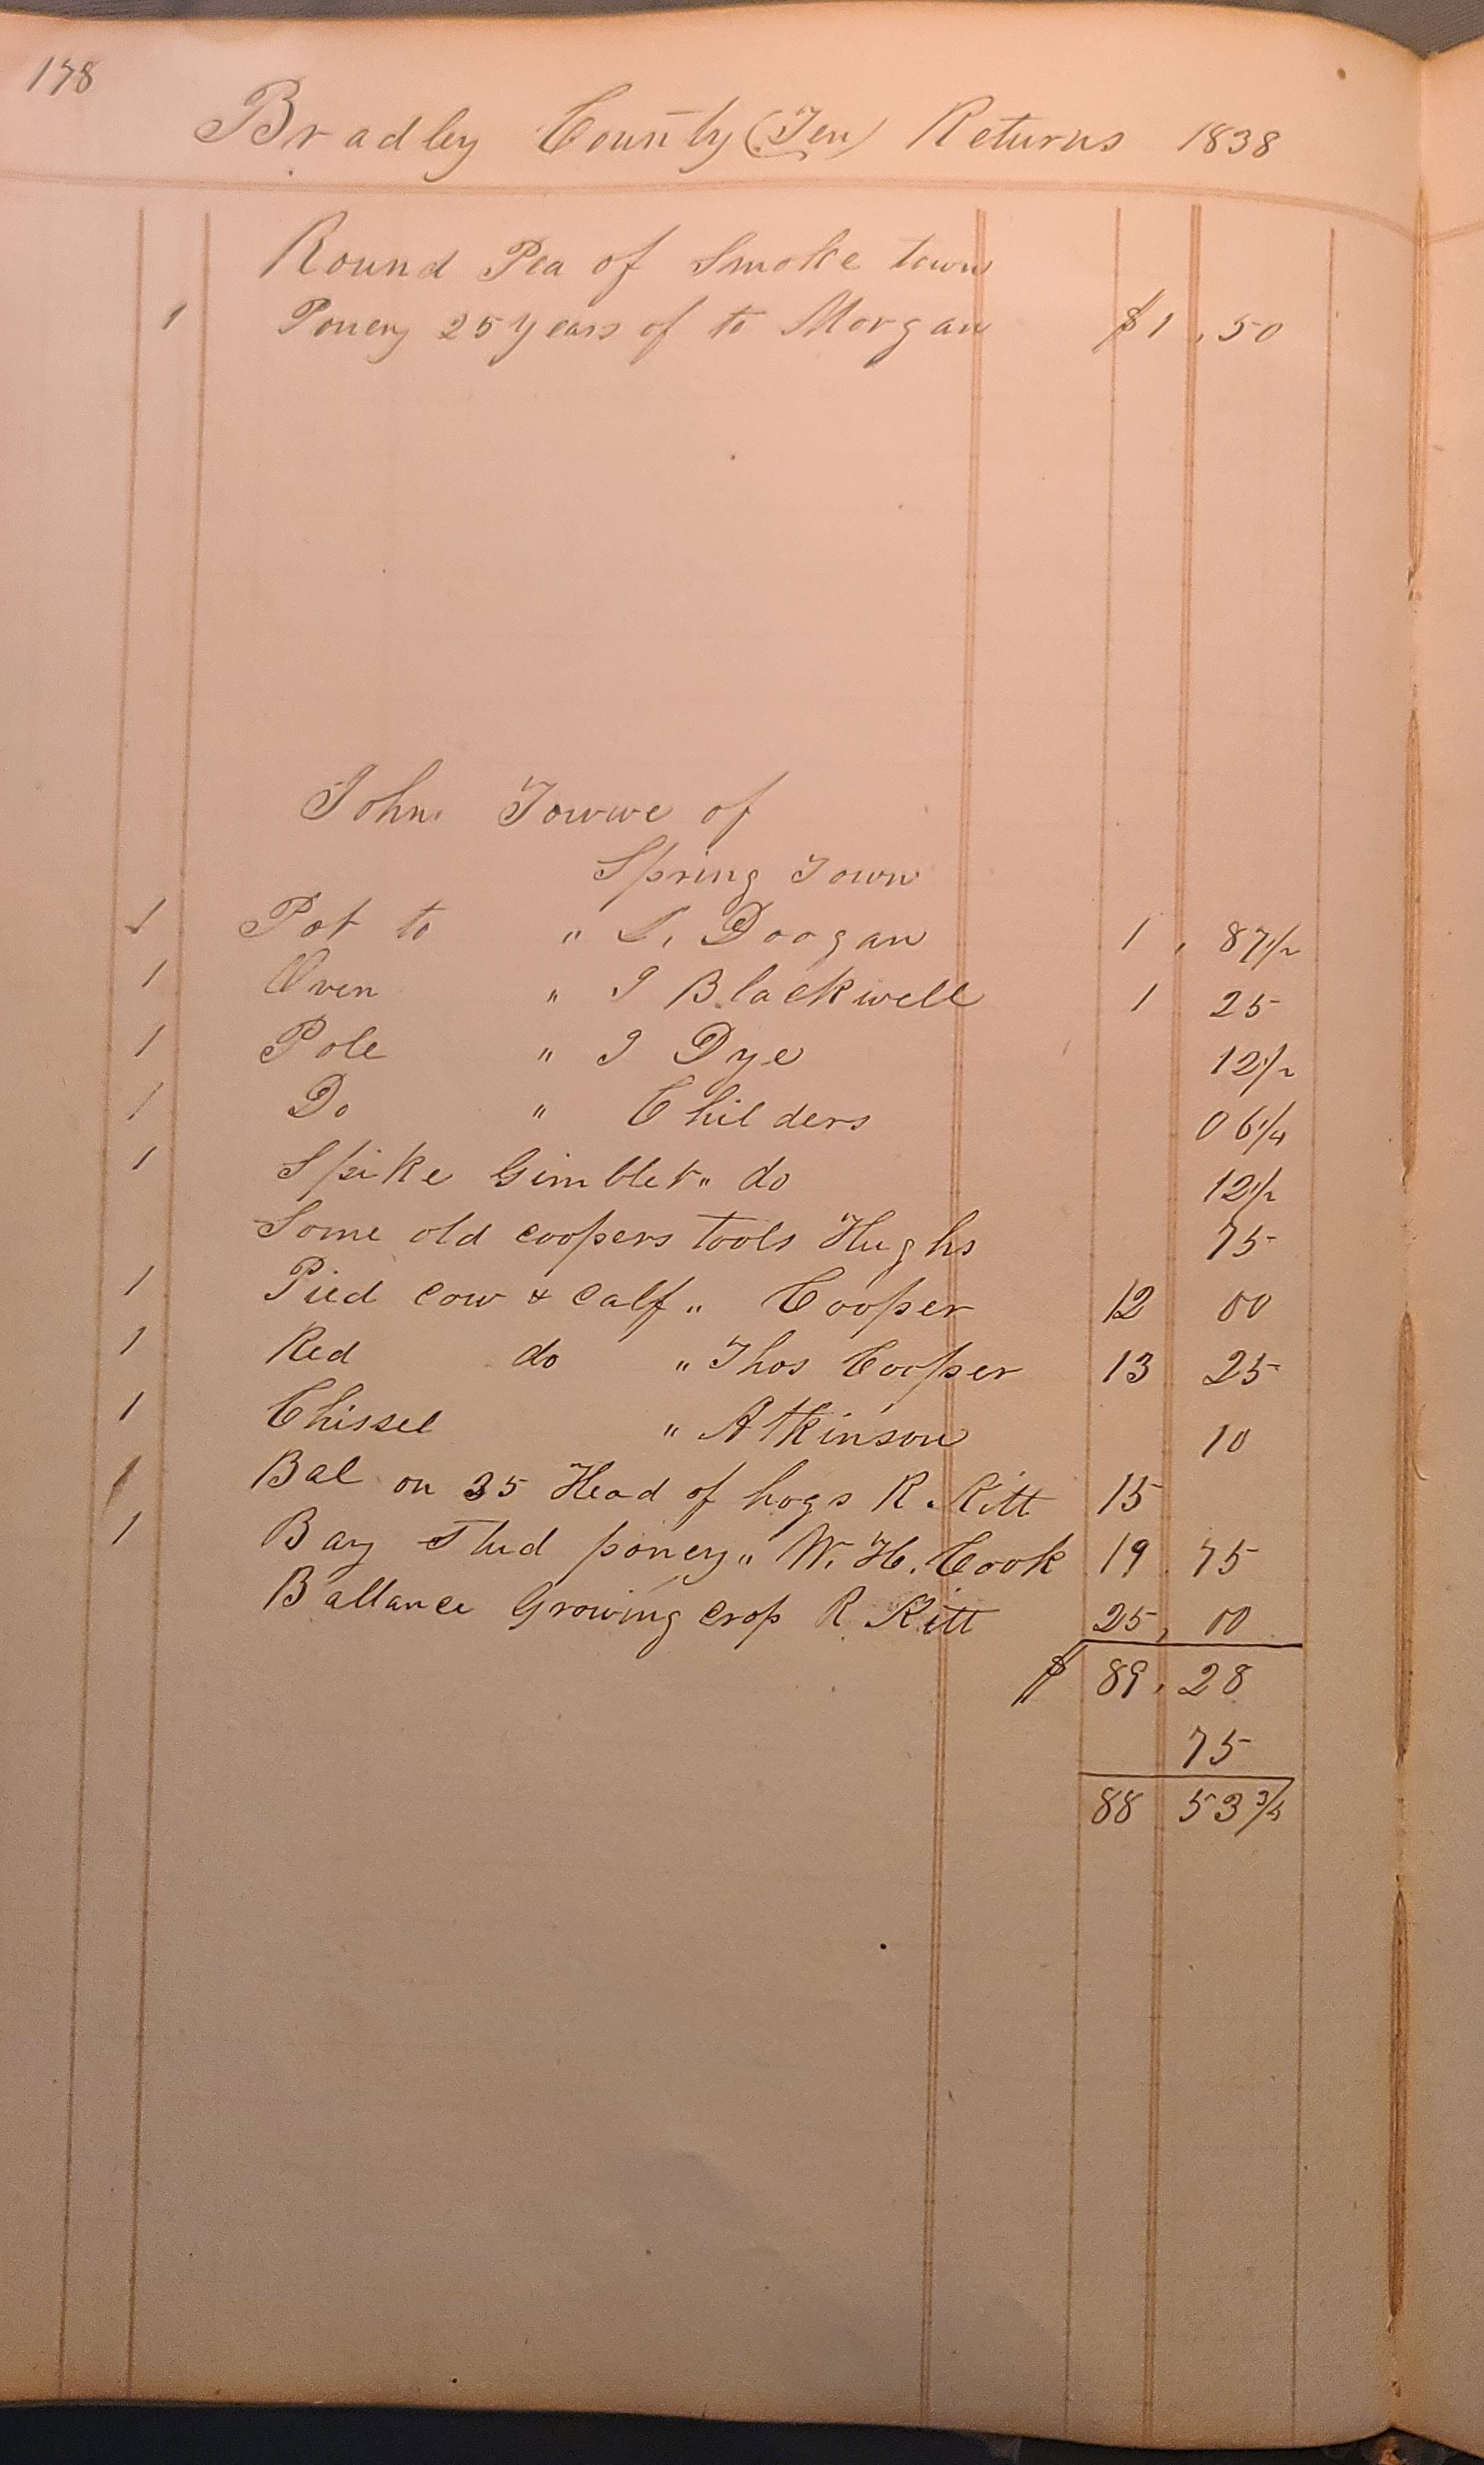 178
Bradley County (Ten) Returns 1838
Round Pea of Smoke town
1 Poney 25 years of to Morgan $1.50
John Towwe of
Spring Town
1 Pot to " S. Doogan 1. 87 1/2
1 Oven " J Blackwell 1 25
1 Pole " J Dye 12 1/2
1 Do " Childers 06 1/4
1 Spike Gimblet " do 12 1/2
Some old coopers tools Hughs 75
1 Pied Cow & Calf " Cooper 12 00
1 Red do " Thos Cooper 13 25
1 Chissel " Atkinson 10
1 Bal on 35 Head of hogs R. Kitt 15
1 Bay Stud poney " W. H. Cook 19 75
Ballance Growing Crop R. Kitt 25, 00
$ 89, 28
75
88 53 3/4